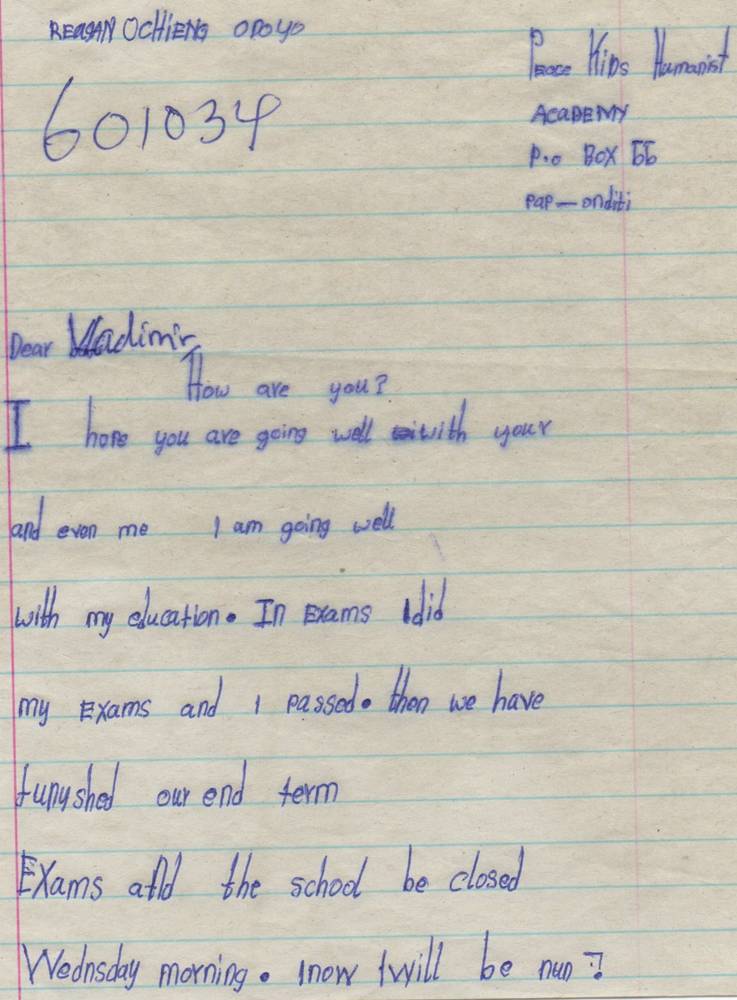 REAGAN OCHIENG ODOYO
601034
Peace Kids Humanist
ACADEMY
P.o BOX 55
pap-onditi
Dear Vladimir
How are you?
I hope you are going well with your
and even me I am going well
with my education. In Exams I did
my Exams and I passed. then we have
funyshed our end term
Exams and the school be closed
Wednsday morning. I now I will be nun?